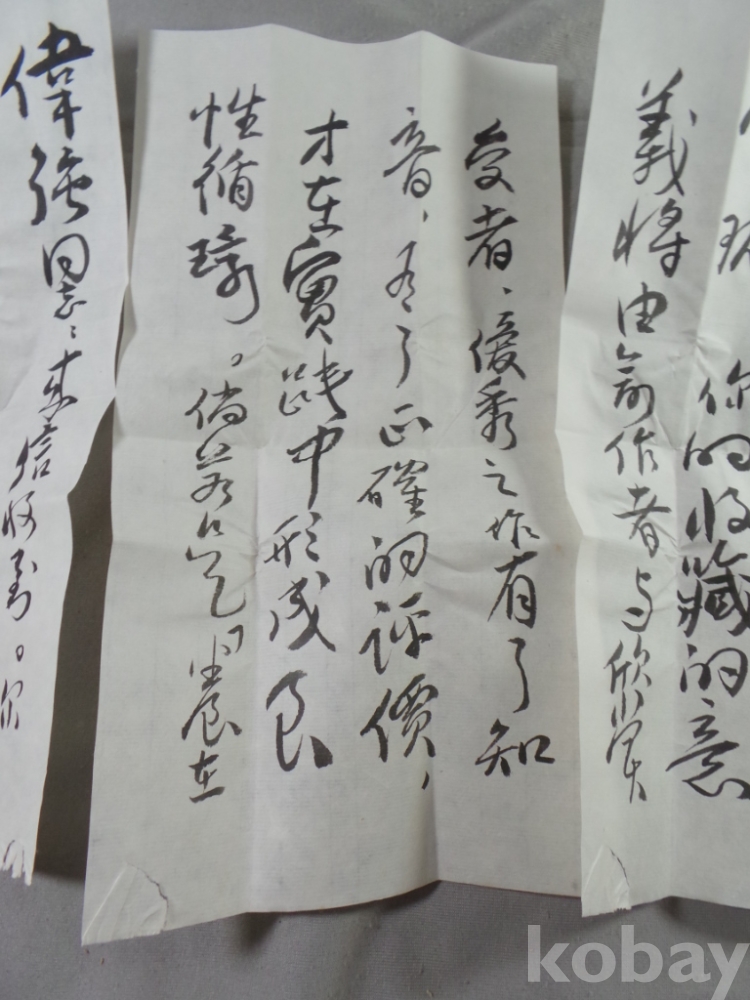 你的收藏的意
義將由創作者与欣賞
受者、優秀之作有了知
音，有了正確的評價，
才在實踐中形成良
性循環。倘若只是在
偉強同志：来信收到。
kobay